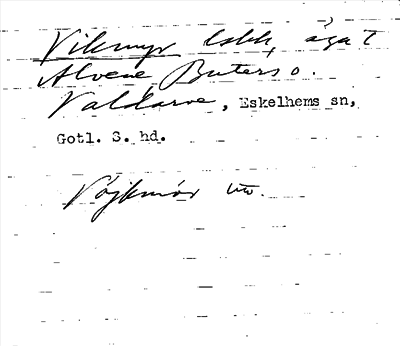 Vikmyr Esklh, äga t
Alvene Buters o.
Valdarve, Eskelhems sn,
Gotl. S. hd.
Väjkmör